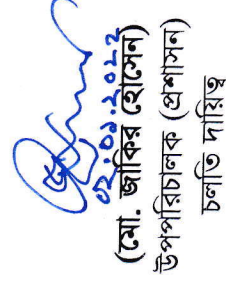 ০২.০১.২০২২
(মো. জাকির হোসেন)
উপপরিচালক (প্রশাসন)
চলতি দায়িত্ব